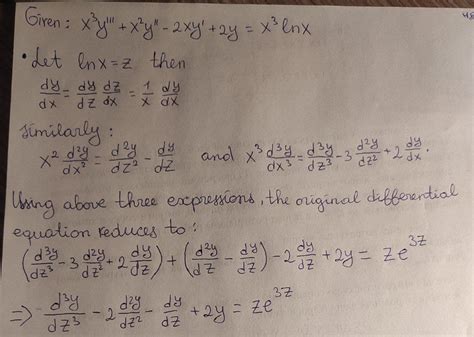 Given: x³y''' + x²y'' - 2xy' + 2y = x³ lnx
• Let lnx = z, then
dy/dx = dy/dz dz/dx = 1/x dy/dx
Similarly:
x² d²y/dx² = d²y/dz² - dy/dz and x³ d³y/dx³ = d³y/dz³ - 3 d²y/dz² + 2 dy/dx.
Using above three expressions, the original differential
equation reduces to:
(d³y/dz³ - 3 d²y/dz² + 2 dy/dz) + (d²y/dz - dy/dz) - 2 dy/dz + 2y = ze^3z
⇒ d³y/dz³ - 2 d²y/dz² - dy/dz + 2y = ze^3z